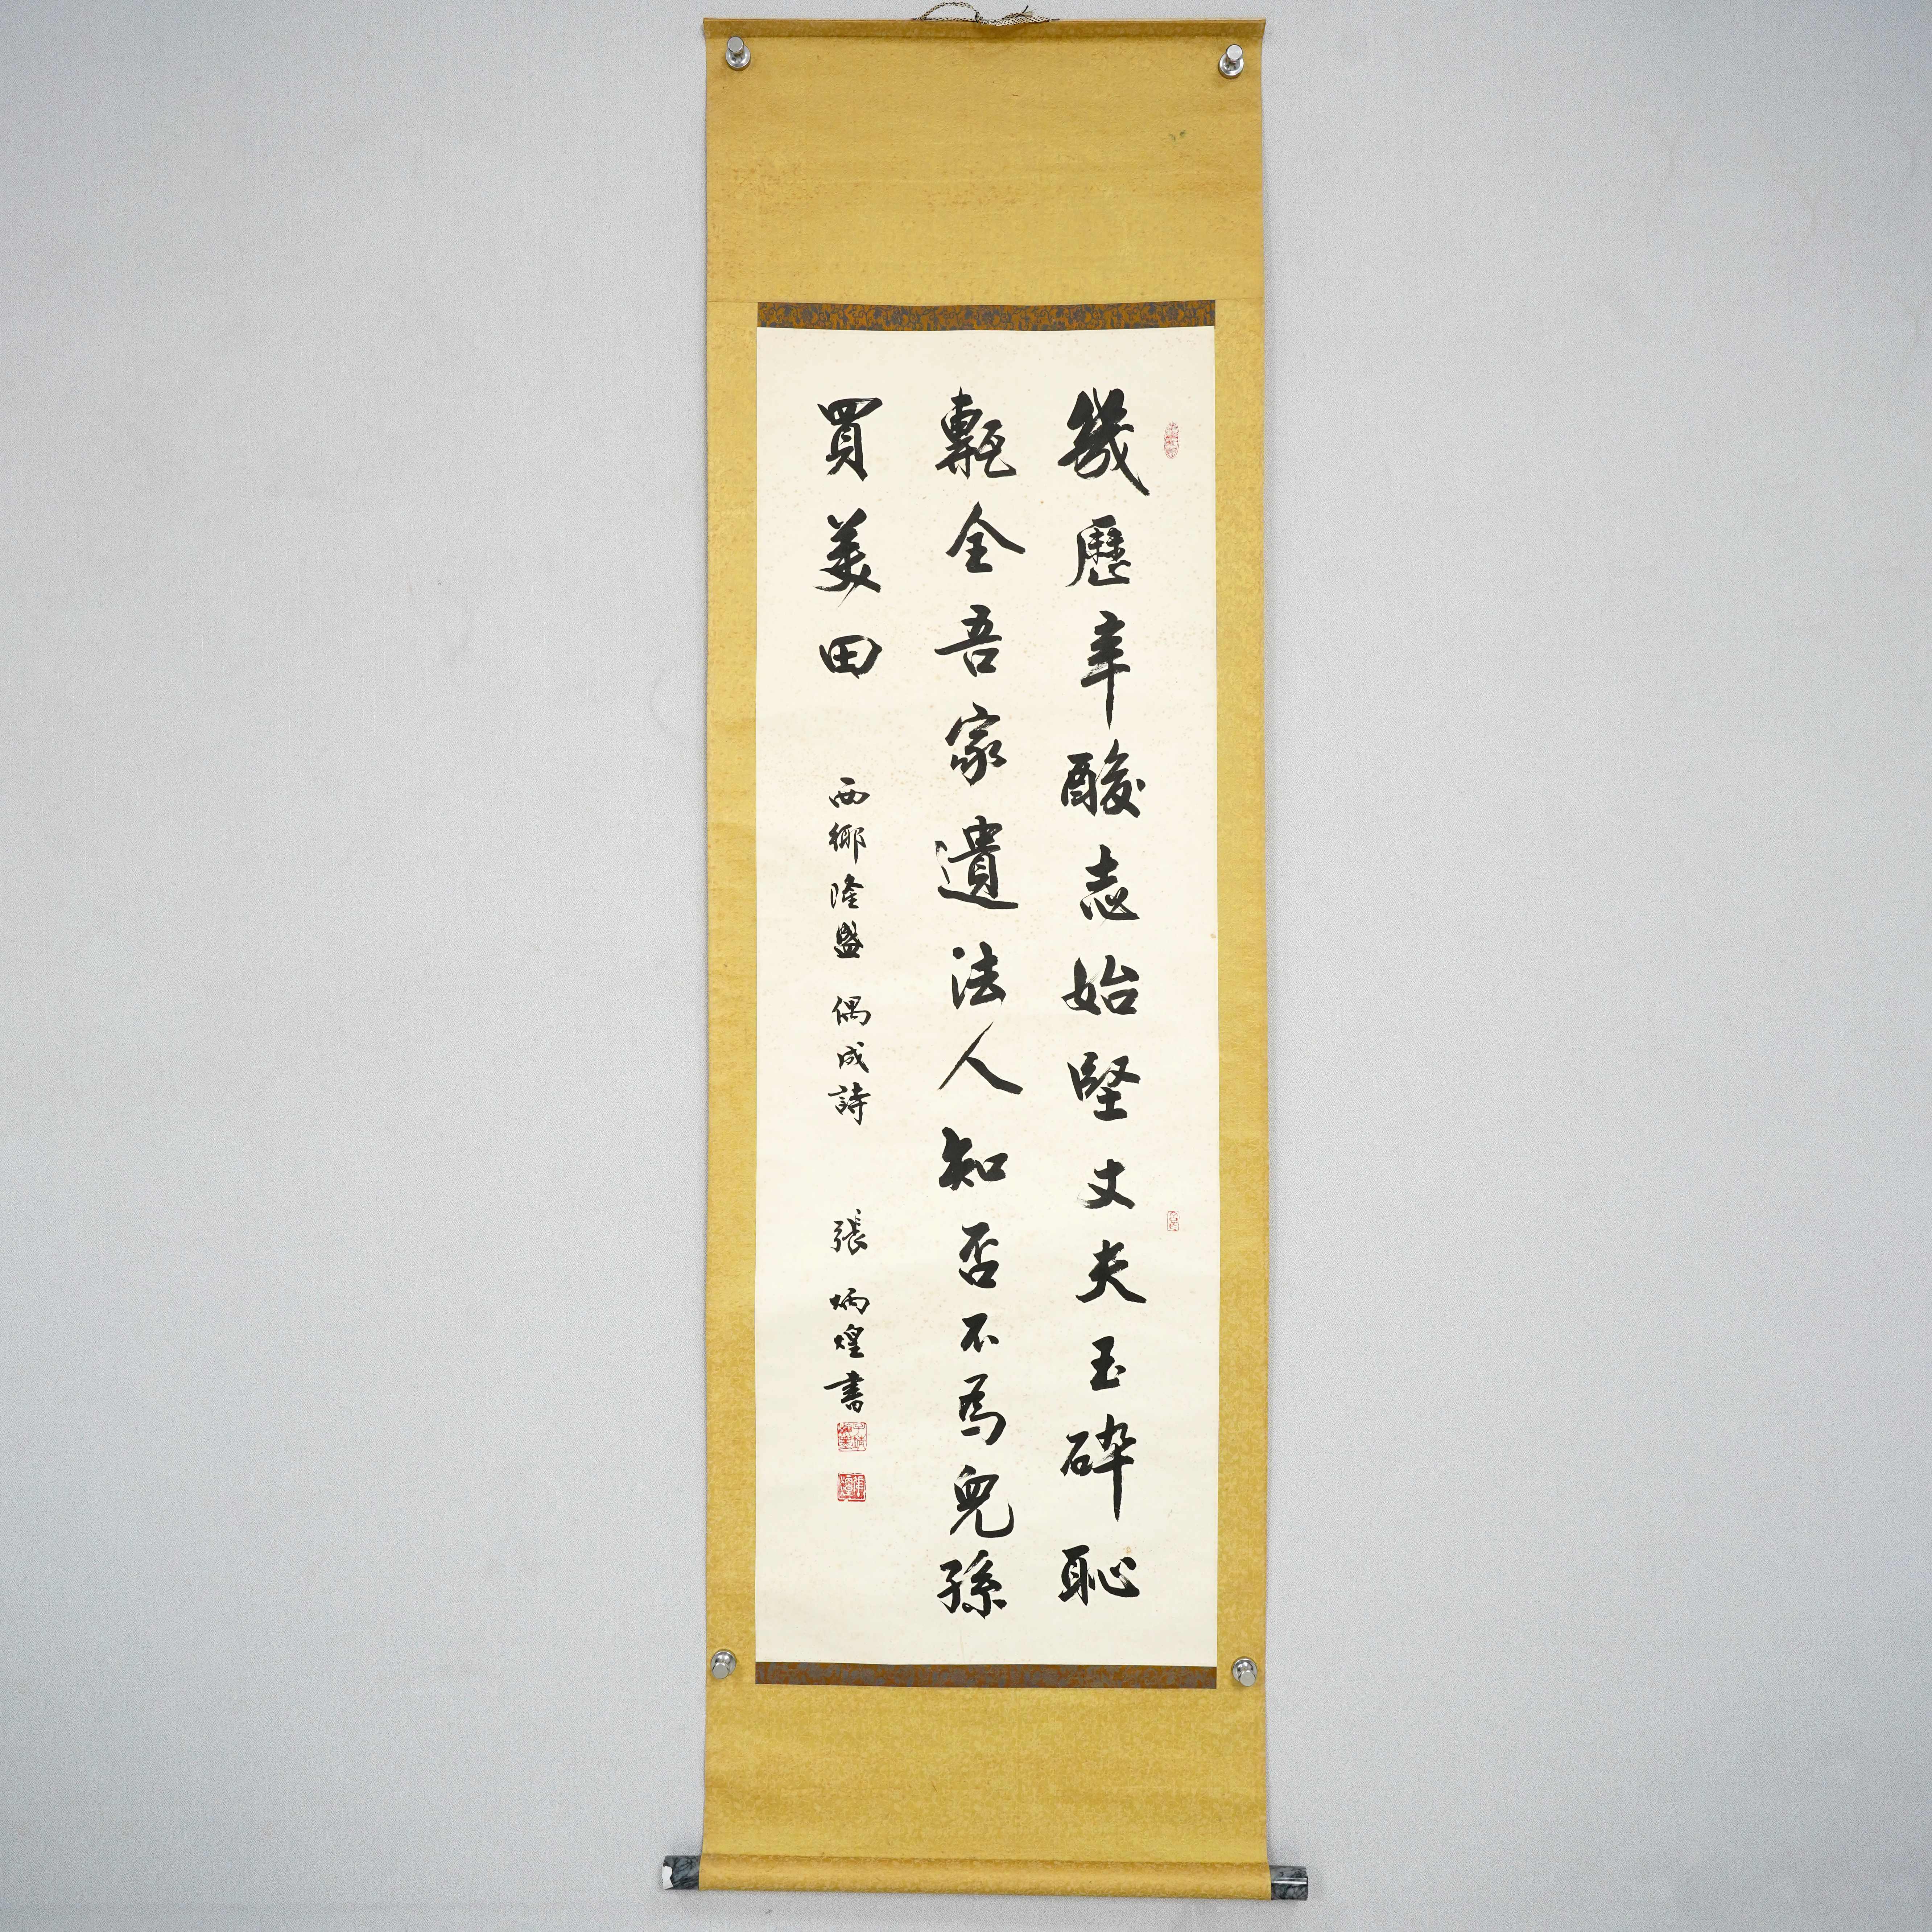 幾歷辛酸志始堅丈夫玉碎恥
甎全吾家遺法人知否不為兒孫
買美田　西鄉隆盛　偶成詩　張炳煌書